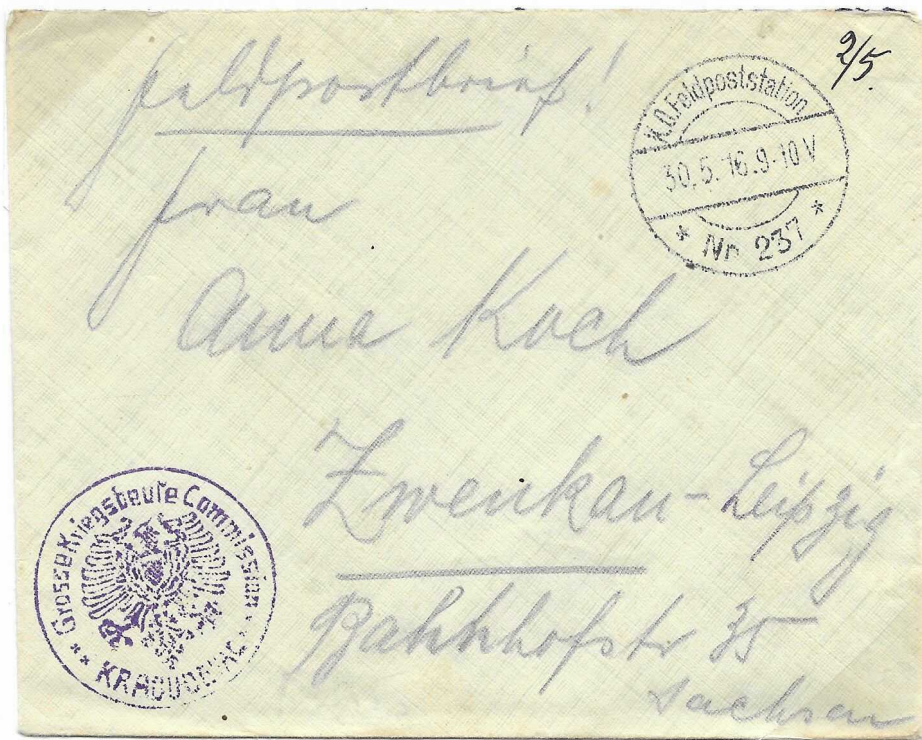 Feldpostbrief!
2/5.
K.D. Feldpoststation
30.5.16.9-10V
* Nr 237 *
Frau
Anna Koch
Zwenkau-Leipzig
Bahnhofstr 35
Sachsen
Grosse Kriegsbeute Commission